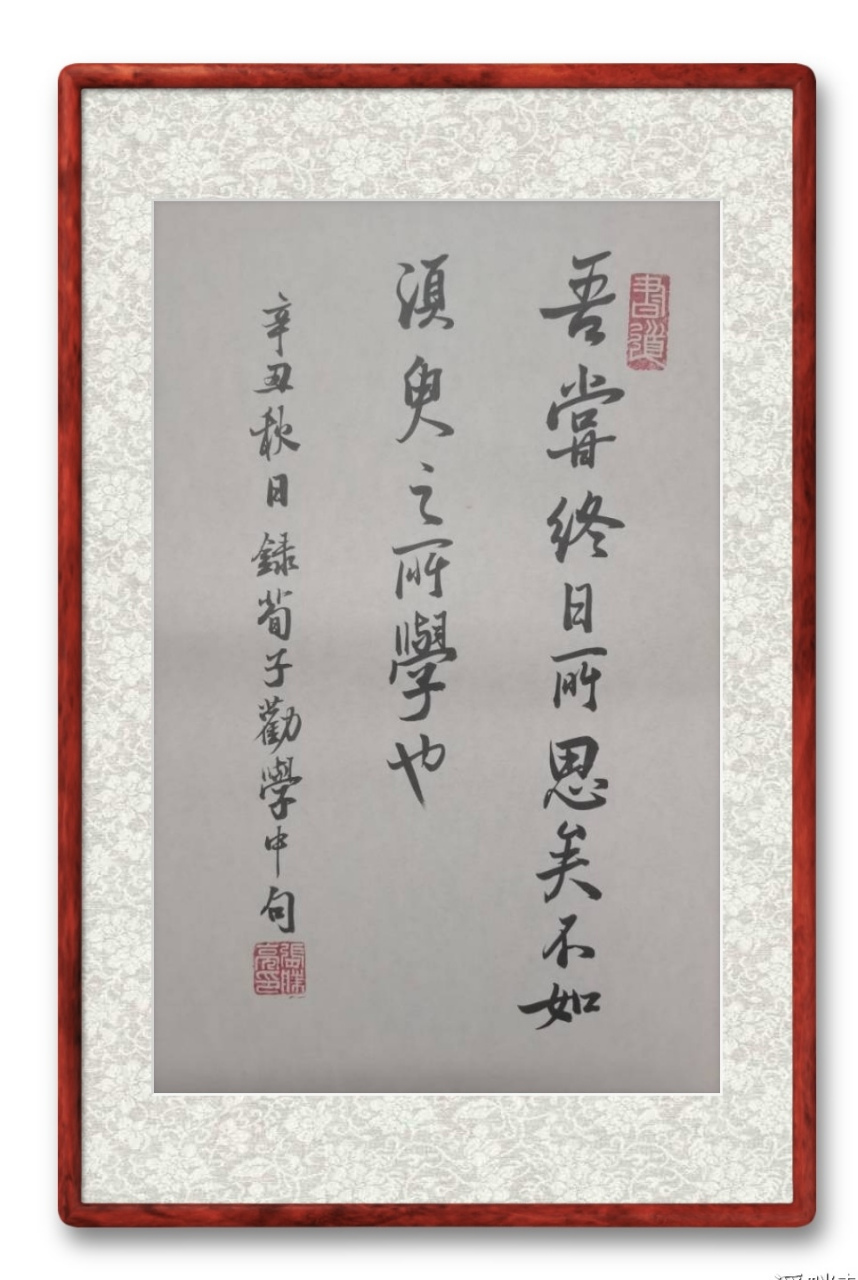 吾嘗終日所思矣不如
須臾之所學也
辛丑秋日錄荀子勸學中句
書道